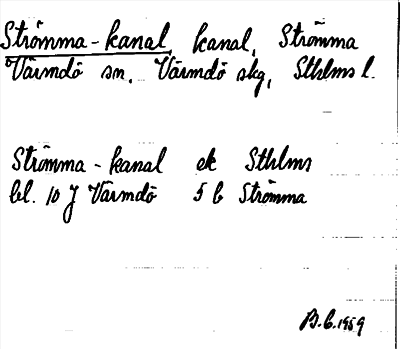 Strömma-kanal, kanal, Strömma
Värmdö sn, Värmdö skg, Sthlms l.
Strömma-kanal ek Sthlms
bl. 10 J Värmdö 5 b Strömma
B.G. 1959